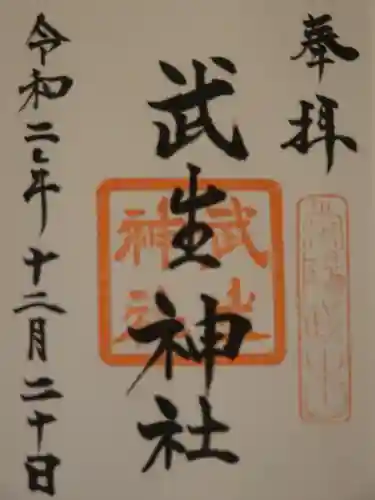 奉拝
武生神社
武生
神社
令和二年十二月二十日